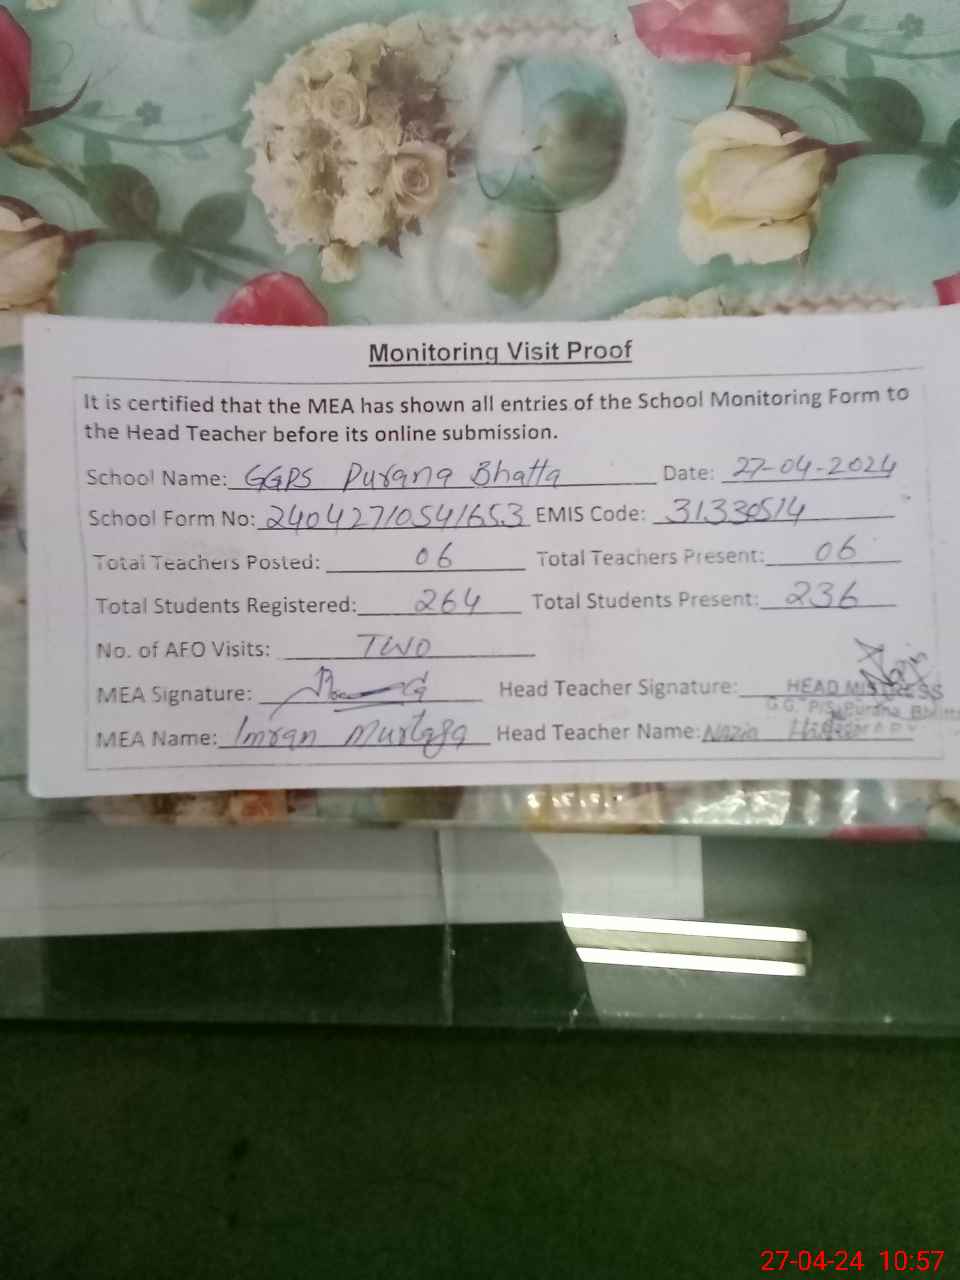 Monitoring Visit Proof
It is certified that the MEA has shown all entries of the School Monitoring Form to
the Head Teacher before its online submission.
School Name: GGPS Purana Bhatta Date: 27-04-2024
School Form No: 24042710541653 EMIS Code: 31330514
Total Teachers Posted: 06 Total Teachers Present: 06
Total Students Registered: 264 Total Students Present: 236
No. of AFO Visits: TWO
MEA Signature: Head Teacher Signature: HEAD MISTRESS
G.G. P/S Purana Bhatta
MEA Name: Imran Murtaza Head Teacher Name: Nazia
27-04-24 10:57